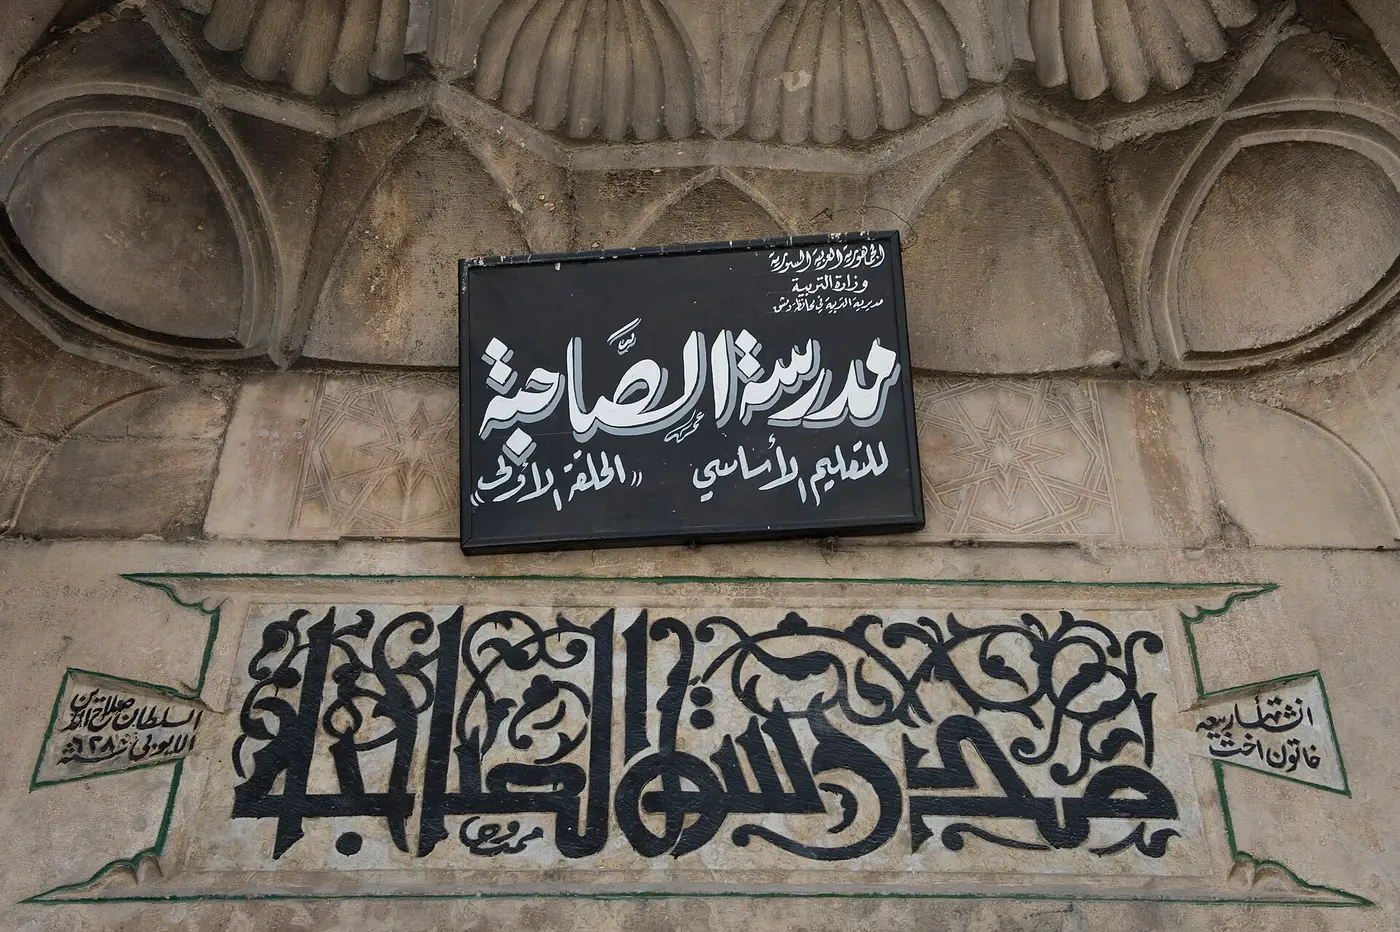 الجمهورية العربية السورية
وزارة التربية
مديرية التربية في محافظة دمشق
مدرسة الصّاحبة
للتعليم الأساسي ((الحلقة الأولى))
مدرسة الصاحبة
انشئتها ربيعه
خاتون اخت
السلطان صلاح الدين
الايوبي سنة ٦٢٨